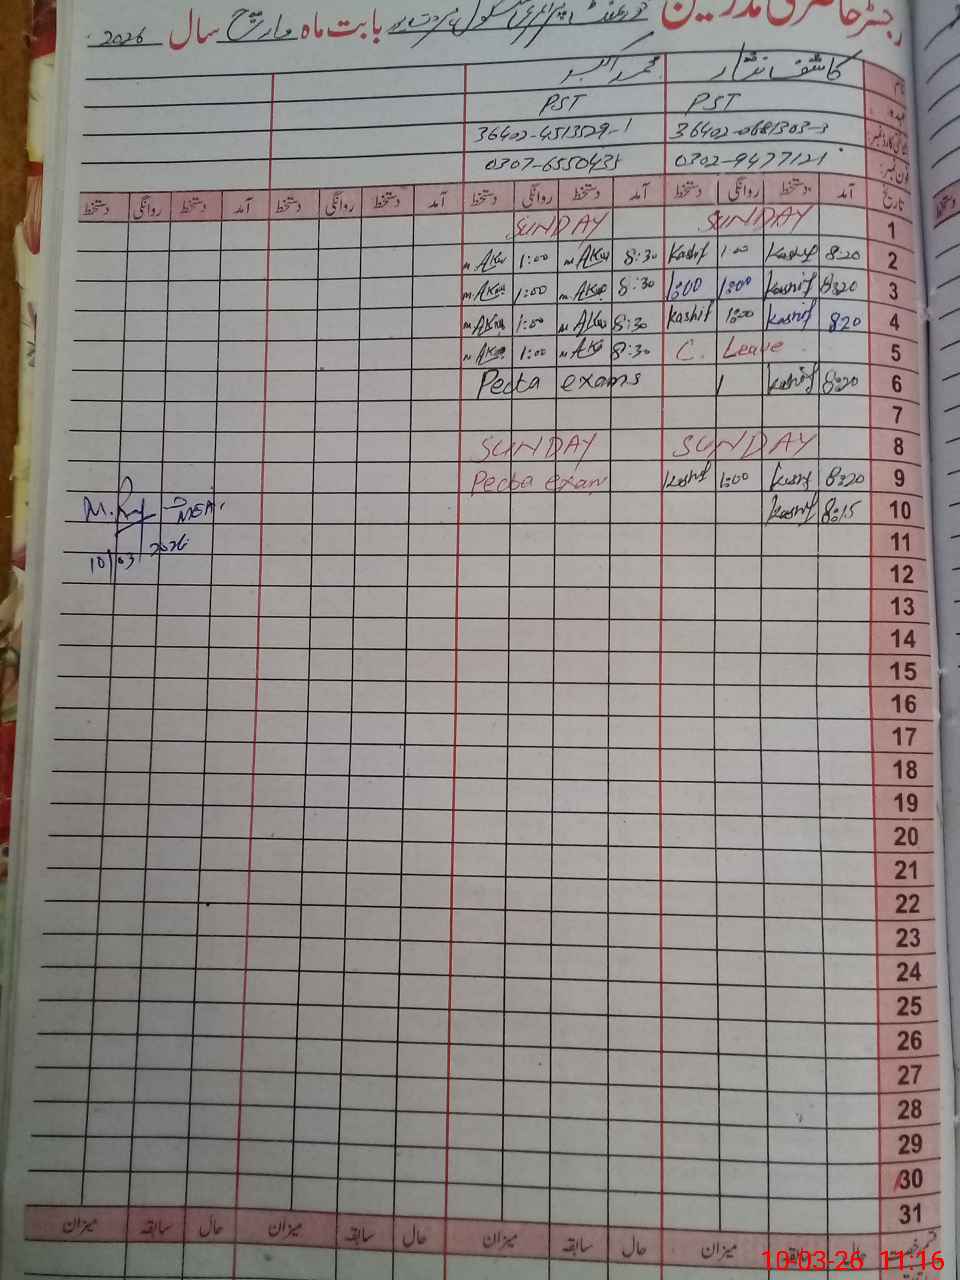 رجسٹر حاضری مدرسین گورنمنٹ پرائمری سکول بابت ماہ مارچ سال 2026
نام کاشف نثار محمد اکبر
عہدہ PST PST
شناختی کارڈ نمبر 36402-0681303-3 36402-4513529-1
فون نمبر 0302-9477121 0307-6550438
تاریخ آمد دستخط روانگی دستخط آمد دستخط روانگی دستخط آمد دستخط روانگی دستخط آمد دستخط روانگی دستخط
1 SUNDAY SUNDAY
2 8:20 Kashif 1:00 Kashif 8:30 m.Akbar 1:00 m.Akbar
3 8:20 Kashif 1:00 1:00 8:30 m.Akbar 1:00 m.Akbar
4 820 Kashif 1:00 Kashif 8:30 m.Akbar 1:00 m.Akbar
5 C. Leave 8:30 m.Akbar 1:00 m.Akbar
6 8:20 Kashif 1 Pecta exams
7
8 SUNDAY SUNDAY
9 8:20 Kashif 1:00 Kashif Pecta exam
10 8:15 Kashif MEA
11 10/03/2026
12
13
14
15
16
17
18
19
20
21
22
23
24
25
26
27
28
29
30
31
حال سابقہ میزان حال سابقہ میزان حال سابقہ میزان حال سابقہ میزان
10-03-26 11:16